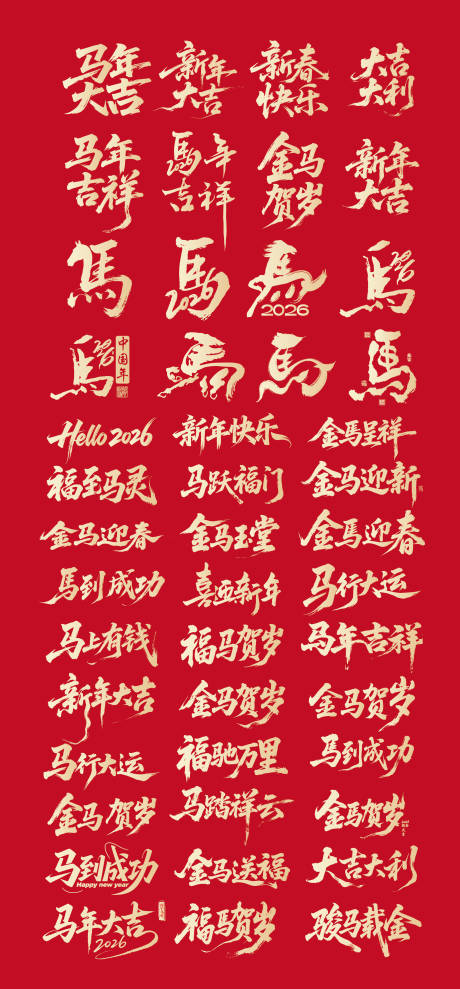 马年
大吉
新年
大吉
新春
快乐
大吉
大利
马年
吉祥
馬年
吉祥
金马
贺岁
新年
大吉
馬
馬
2026
馬
2026
馬
2026
馬
2026
中国年
馬
馬
馬
Hello 2026
新年快乐
金馬呈祥
福至马灵
马跃福门
金马迎新
金马迎春
金马玉堂
金馬迎春
馬到成功
喜迎新年
马行大运
马上有钱
福马贺岁
马年吉祥
新年大吉
金马贺岁
金马贺岁
马行大运
福驰万里
马到成功
金马贺岁
马踏祥云
金馬贺岁
马到成功
Happy new year
金马送福
大吉大利
马年大吉
2026
福馬贺岁
骏马载金